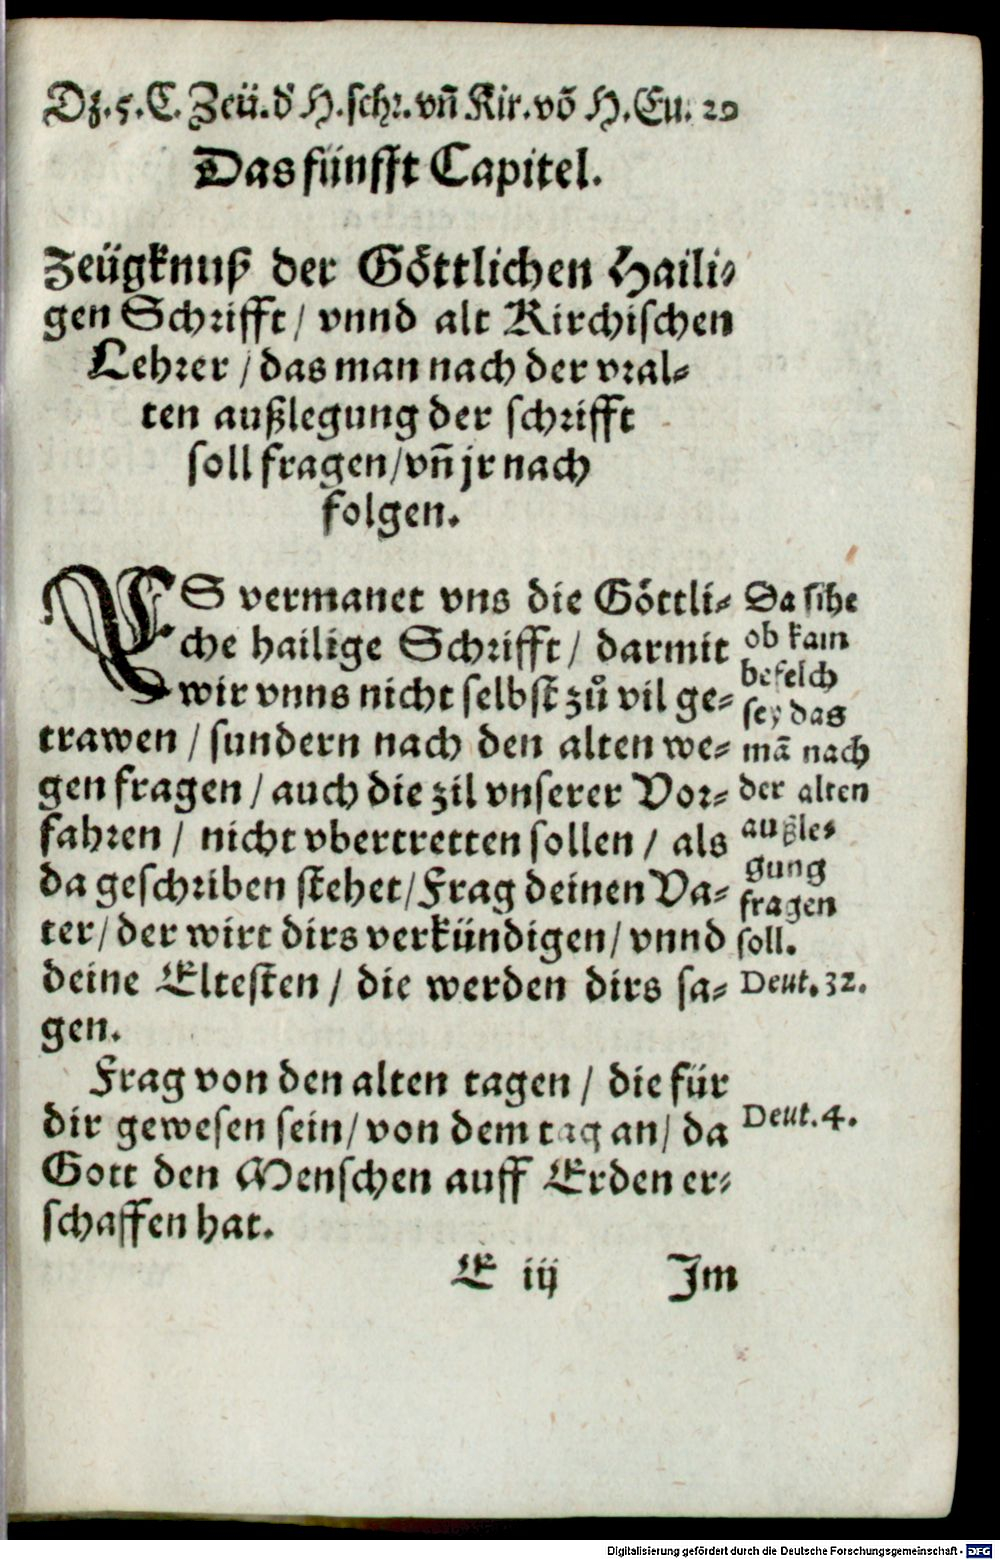 Dz.5.C.Zeü.d' H.schr.vñ Kir.võ H.Eu. 29
Das fünfft Capitel.
Zeügknuß der Göttlichen Haili⸗
gen Schrifft / vnnd alt Kirchischen
Lehrer / das man nach der vral⸗
ten außlegung der schrifft
soll fragen / vñ jr nach
folgen.
ES vermanet vns die Göttli⸗
che hailige Schrifft / darmit
wir vnns nicht selbst zů vil ge⸗
trawen / sundern nach den alten we⸗
gen fragen / auch die zil vnserer Vor⸗
fahren / nicht vbertretten sollen / als
da geschriben stehet / Frag deinen Va⸗
ter / der wirt dirs verkündigen / vnnd
deine Eltesten / die werden dirs sa⸗
gen.
Frag von den alten tagen / die für
dir gewesen sein / von dem tag an / da
Gott den Menschen auff Erden er⸗
schaffen hat.
Da sihe
ob kain
befelch
sey das
mã nach
der alten
außle⸗
gung
fragen
soll.
Deut. 32.
Deut. 4.
E iij Im
Digitalisierung gefördert durch die Deutsche Forschungsgemeinschaft - DFG